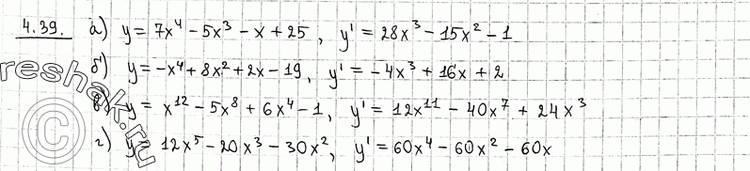 4.39. а) y = 7x⁴ - 5x³ - x + 25, y' = 28x³ - 15x² - 1
б) y = -x⁴ + 8x² + 2x - 19, y' = -4x³ + 16x + 2
в) y = x¹² - 5x⁸ + 6x⁴ - 1, y' = 12x¹¹ - 40x⁷ + 24x³
г) y = 12x⁵ - 20x³ - 30x², y' = 60x⁴ - 60x² - 60x
©reshak.ru